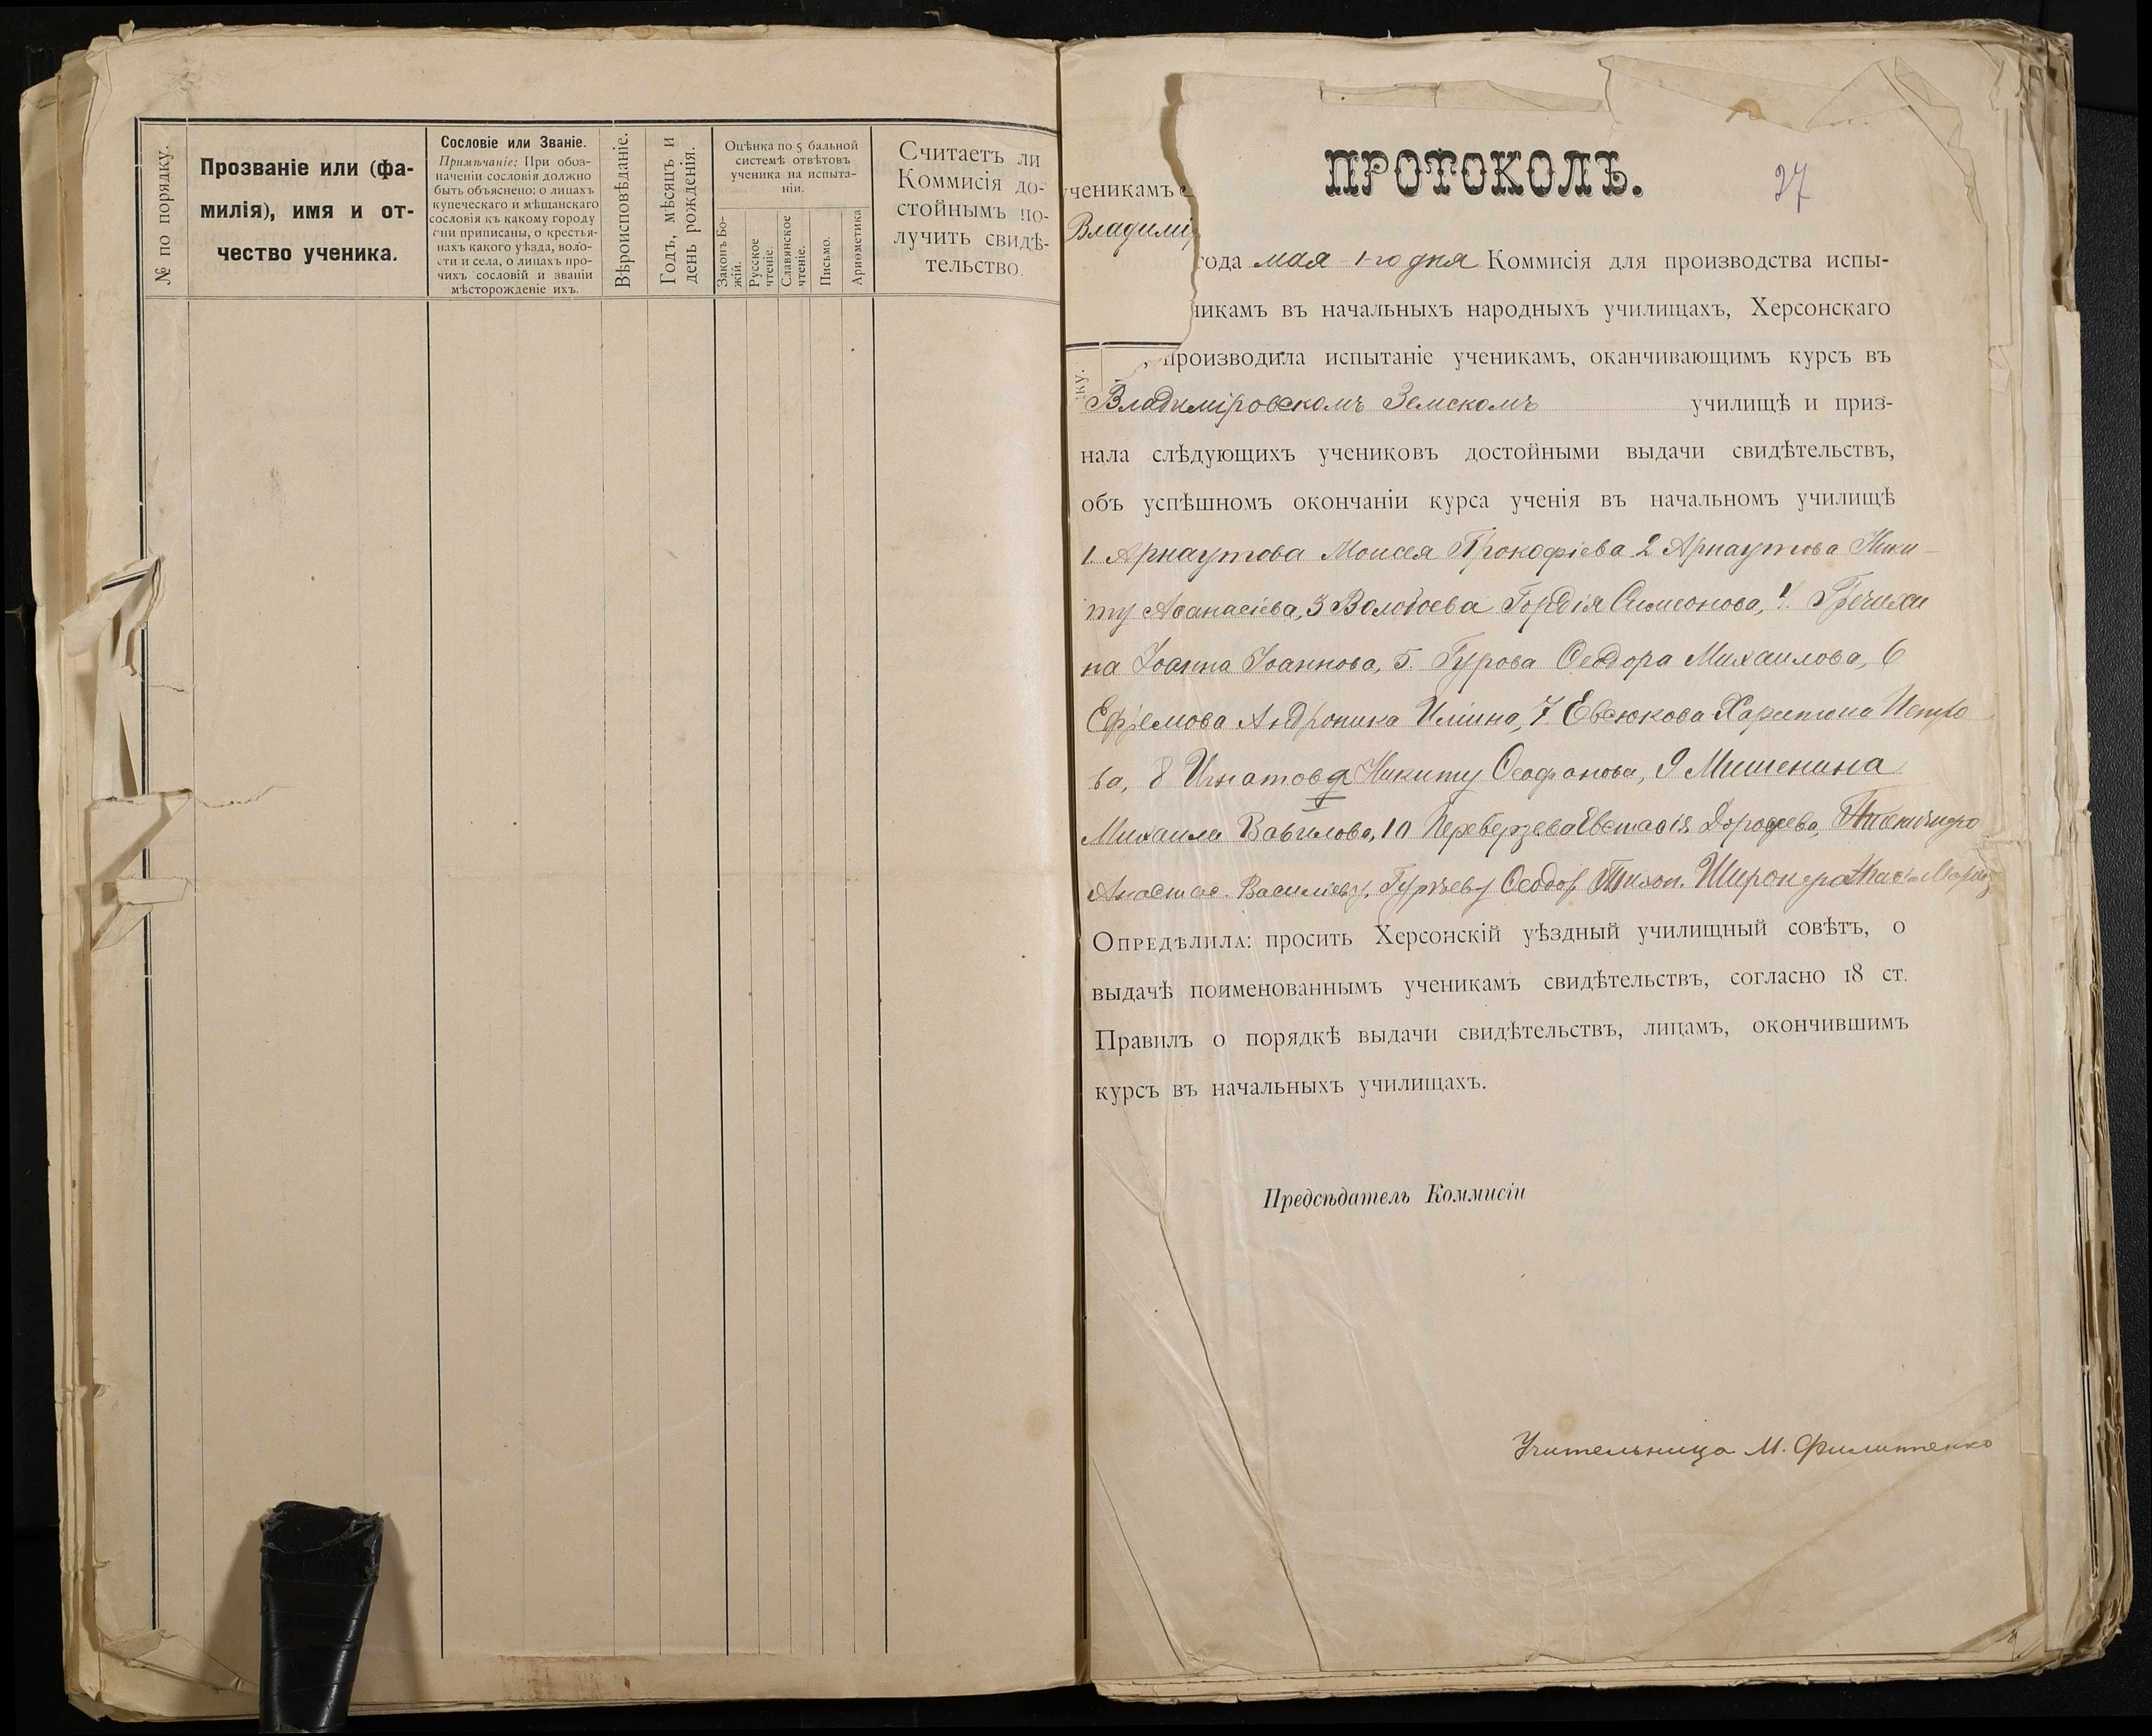 № по порядку.
Прозваніе или (фа-
милія), имя и от-
чество ученика.
Сословіе или Званіе.
Примѣчаніе: При обоз-
наченіи сословія должно
быть объяснено: о лицахъ
купеческаго и мѣщанскаго
сословія къ какому городу
они приписаны, о крестья-
нахъ какого уѣзда, воло-
сти и села, о лицахъ про-
чихъ сословій и званіи
мѣсторожденіе ихъ.
Вѣроисповѣданіе.
Годъ, мѣсяцъ и
день рожденія.
Оцѣнка по 5 бальной
системѣ отвѣтовъ
ученика на испыта-
ніи.
Законъ Бо-
жій.
Русское
чтеніе.
Славянское
чтеніе.
Письмо.
Ариѳметика
Считаетъ ли
Коммисія до-
стойнымъ по-
лучить свидѣ-
тельство.
ПРОТОКОЛЪ.
37
ученикамъ
Владимі
года мая 1-го дня Коммисія для производства испы-
никамъ въ начальныхъ народныхъ училищахъ, Херсонскаго
, производила испытаніе ученикамъ, оканчивающимъ курсъ въ
ку.
Владиміровскомъ Земскомъ училищѣ и приз-
нала слѣдующихъ учениковъ достойными выдачи свидѣтельствъ,
объ успѣшномъ окончаніи курса ученія въ начальномъ училищѣ
1. Арнаутова Моисея Прокофіева 2 Арнаутова Ники-
ту Аѳанасіева, 3 Волобоева Гордія Симеонова, 4. Гречихи
на Іоанна Іоаннова, 5. Гурова Ѳеодора Михаилова, 6
Ефремова Андроника Иліина, 7. Евсюкова Харитона Петро
ва, 8 Игнатова Никиту Ѳеофанова, 9 Мишенина
Михаила Вавилова, 10 Переверзева Евстафія Дорофеева,
Анастас. Василіеву, Гурьеву Ѳеодос. Тихон.
Опредѣлила: просить Херсонскій уѣздный училищный совѣтъ, о
выдачѣ поименованнымъ ученикамъ свидѣтельствъ, согласно 18 ст.
Правилъ о порядкѣ выдачи свидѣтельствъ, лицамъ, окончившимъ
курсъ въ начальныхъ училищахъ.
Предсѣдатель Коммисіи
Учительница М. Филиппенко